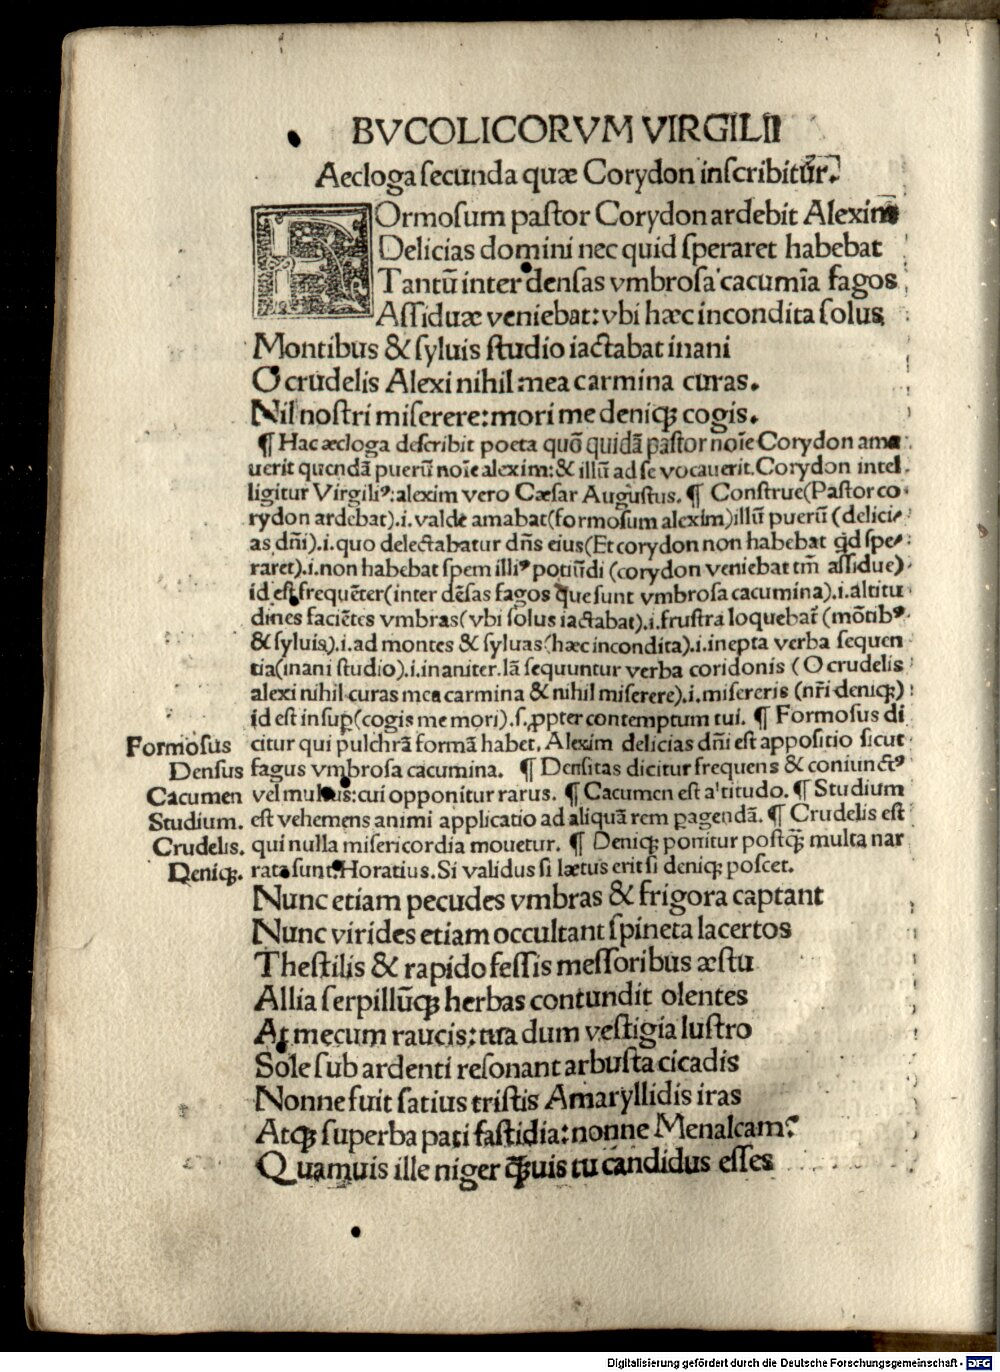 BVCOLICORVM VIRGILII
Aecloga secunda quæ Corydon inſcribitur.
FOrmoſum paſtor Corydon ardebit Alexim
Delicias domini nec quid ſperaret habebat
Tantū inter denſas vmbroſa cacumīa fagos
Aſſiduæ veniebat: vbi hæc incondita ſolus
Montibus & ſyluis ſtudio iactabat inani
O crudelis Alexi nihil mea carmina curas.
Nil noſtri miſerere: mori me deniqꝫ cogis.
¶ Hac æcloga deſcribit poeta quō quidā paſtor noīe Corydon ama
uerit quendā puerū noīe alexim: & illū ad ſe vocauerit. Corydon intel
ligitur Virgiliꝰ: alexim vero Cæſar Auguſtus. ¶ Conſtrue (Paſtor co
rydon ardebat) .i. valde amabat (formoſum alexim) illū puerū (delici⸗
as dñi) .i. quo delectabatur dñs eius (Et corydon non habebat qd ſpe⸗
raret) .i. non habebat ſpem illiꝰ potiūdi (corydon veniebat tm̄ aſſidue)
id eſt frequēter (inter dēſas fagos que ſunt vmbroſa cacumina) .i. altitu
dines faciētes vmbras (vbi ſolus iactabat) .i. fruſtra loquebat̄ (mōtibꝰ
& ſyluis) .i. ad montes & ſyluas (hæc incondita) .i. inepta verba ſequen
tia (inani ſtudio) .i. inaniter. Iā ſequuntur verba coridonis (O crudelis
alexi nihil curas mea carmina & nihil miſerere) .i. miſereris (nr̄i deniqꝫ)
id eſt inſuꝑ (cogis me mori) .ſ. ꝓpter contemptum tui. ¶ Formoſus di
Formoſus citur qui pulchrā formā habet. Alexim delicias dñi eſt appoſitio ſicut
Denſus fagus vmbroſa cacumina. ¶ Denſitas dicitur frequens & coniunctꝰ
Cacumen vel multus: cui opponitur rarus. ¶ Cacumen eſt altitudo. ¶ Studium
Studium. eſt vehemens animi applicatio ad aliquā rem pagendā. ¶ Crudelis eſt
Crudelis. qui nulla miſericordia mouetur. ¶ Deniqꝫ ponitur poſtqꝫ multa nar
Deniqꝫ. rata ſunt. Horatius. Si validus ſi lætus erit ſi deniqꝫ poſcet.
Nunc etiam pecudes vmbras & frigora captant
Nunc virides etiam occultant ſpineta lacertos
Theſtilis & rapido feſſis meſſoribus æſtu
Allia ſerpillūqꝫ herbas contundit olentes
At mecum raucis: tua dum veſtigia luſtro
Sole ſub ardenti reſonant arbuſta cicadis
Nonne fuit ſatius triſtis Amaryllidis iras
Atqꝫ ſuperba pati faſtidia: nonne Menalcam?
Quamuis ille niger qꝫuis tu candidus eſſes
Digitalisierung gefördert durch die Deutsche Forschungsgemeinschaft - DFG